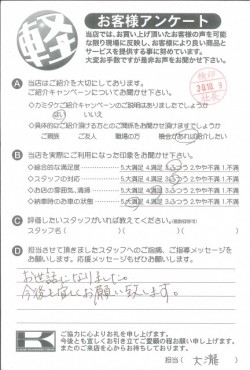 軽
お客様アンケート
当店では、お買い上げ頂いたお客様の声を可能
な限り現場に反映し、お客様により良い商品と
サービスを提供する事に努めています。
大変お手数ですが是非お声をお聞かせ下さい。
A 当店はご紹介を大切にしております。
ご紹介キャンペーンについてお聞かせ下さい。
◇カミタケご紹介キャンペーンのご説明はありましたでしょうか
はい いいえ
◇具体的にご紹介頂ける方とのご関係をお聞かせ頂けますでしょうか
ご親族 ご友人 職場の方 機会があればご紹介可
B 当店を実際にご利用になった印象をお聞かせ下さい。
◇総合的な満足度 5.大満足 4.満足 3.ふつう 2.やや不満 1.不満
◇スタッフの対応 5.大満足 4.満足 3.ふつう 2.やや不満 1.不満
◇お店の雰囲気、清掃 5.大満足 4.満足 3.ふつう 2.やや不満 1.不満
◇納車時のお車の状態 5.大満足 4.満足 3.ふつう 2.やや不満 1.不満
C 評価したいスタッフがいれば教えてください。
スタッフ名( )( )
D 担当させて頂きましたスタッフへのご指摘、ご指導メッセージを
お願いします。応援メッセージもぜひお願いします。
お世話になりました。
今後も宜しくお願い致します。
K
ご協力に心よりお礼を申し上げます。
今後とも宜しくお引き立てご愛顧の程お願い申し上げます。
またのご来店を心からお待ちしております。
担当( 大瀧 )